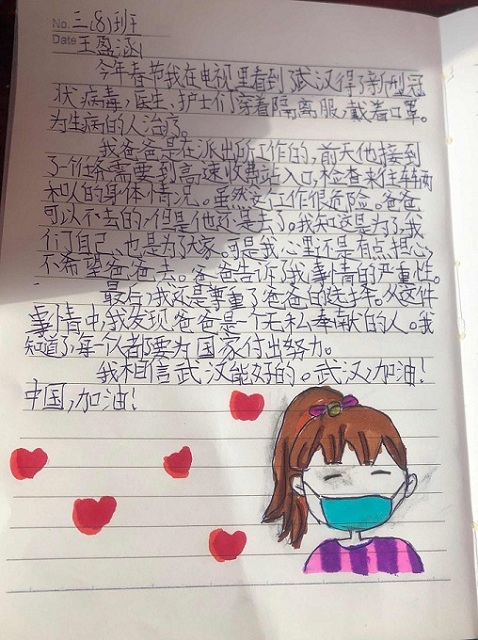 No. 三(8)班
Date 王盈涵
今年春节我在电视里看到了武汉得了新型冠
状病毒,医生、护士们穿着隔离服,戴着口罩。
为生病的人治疗。
我爸爸是在派出所工作的,前天他接到
了一个任务需要到高速收费站入口,检查来往车辆
和人的身体情况。虽然这工作很危险。爸爸
可以不去的,但是他还是去了。我知道是为了,我
们了自己,也是为了大家。可是我心里还是有点担心,
不希望爸爸去。爸爸告诉了我事情的严重性。
最后,我还是尊重了爸爸的选择。从这件
事情中,我发现爸爸是个无私奉献的人。我
知道了,每个人都要为国家付出努力。
我相信武汉能好的。武汉,加油!
中国,加油!